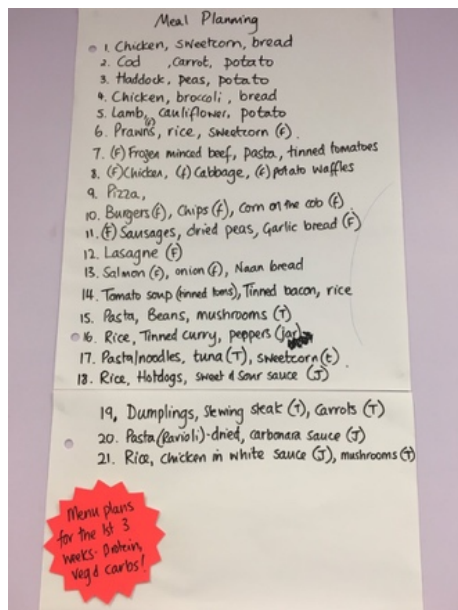 Meal Planning
1. Chicken, sweetcorn, bread
2. Cod , carrot, potato
3. Haddock, peas, potato
4. Chicken, broccoli, bread
5. Lamb, cauliflower, potato
6. Prawns, (F) rice, sweetcorn (F).
7. (F) Frozen minced beef, pasta, tinned tomatoes
8. (F) Chicken, (F) Cabbage, (F) potato waffles
9. Pizza,
10. Burgers (F), Chips (F), Corn on the cob (F)
11. (F) Sausages, dried peas, Garlic bread (F)
12. Lasagne (F)
13. Salmon (F), onion (F), Naan bread
14. Tomato soup (tinned toms), Tinned bacon, rice
15. Pasta, Beans, mushrooms (T)
16. Rice, Tinned curry, peppers (jar)
17. Pasta/noodles, tuna (T), sweetcorn (t).
18. Rice, Hotdogs, sweet & sour sauce (J)
19, Dumplings, stewing steak (T), carrots (T)
20. Pasta (Ravioli) - dried, carbonara sauce (J)
21. Rice, chicken in white sauce (J), mushrooms (T)
Menu plans
for the 1st 3
weeks - Protein,
veg & carbs!